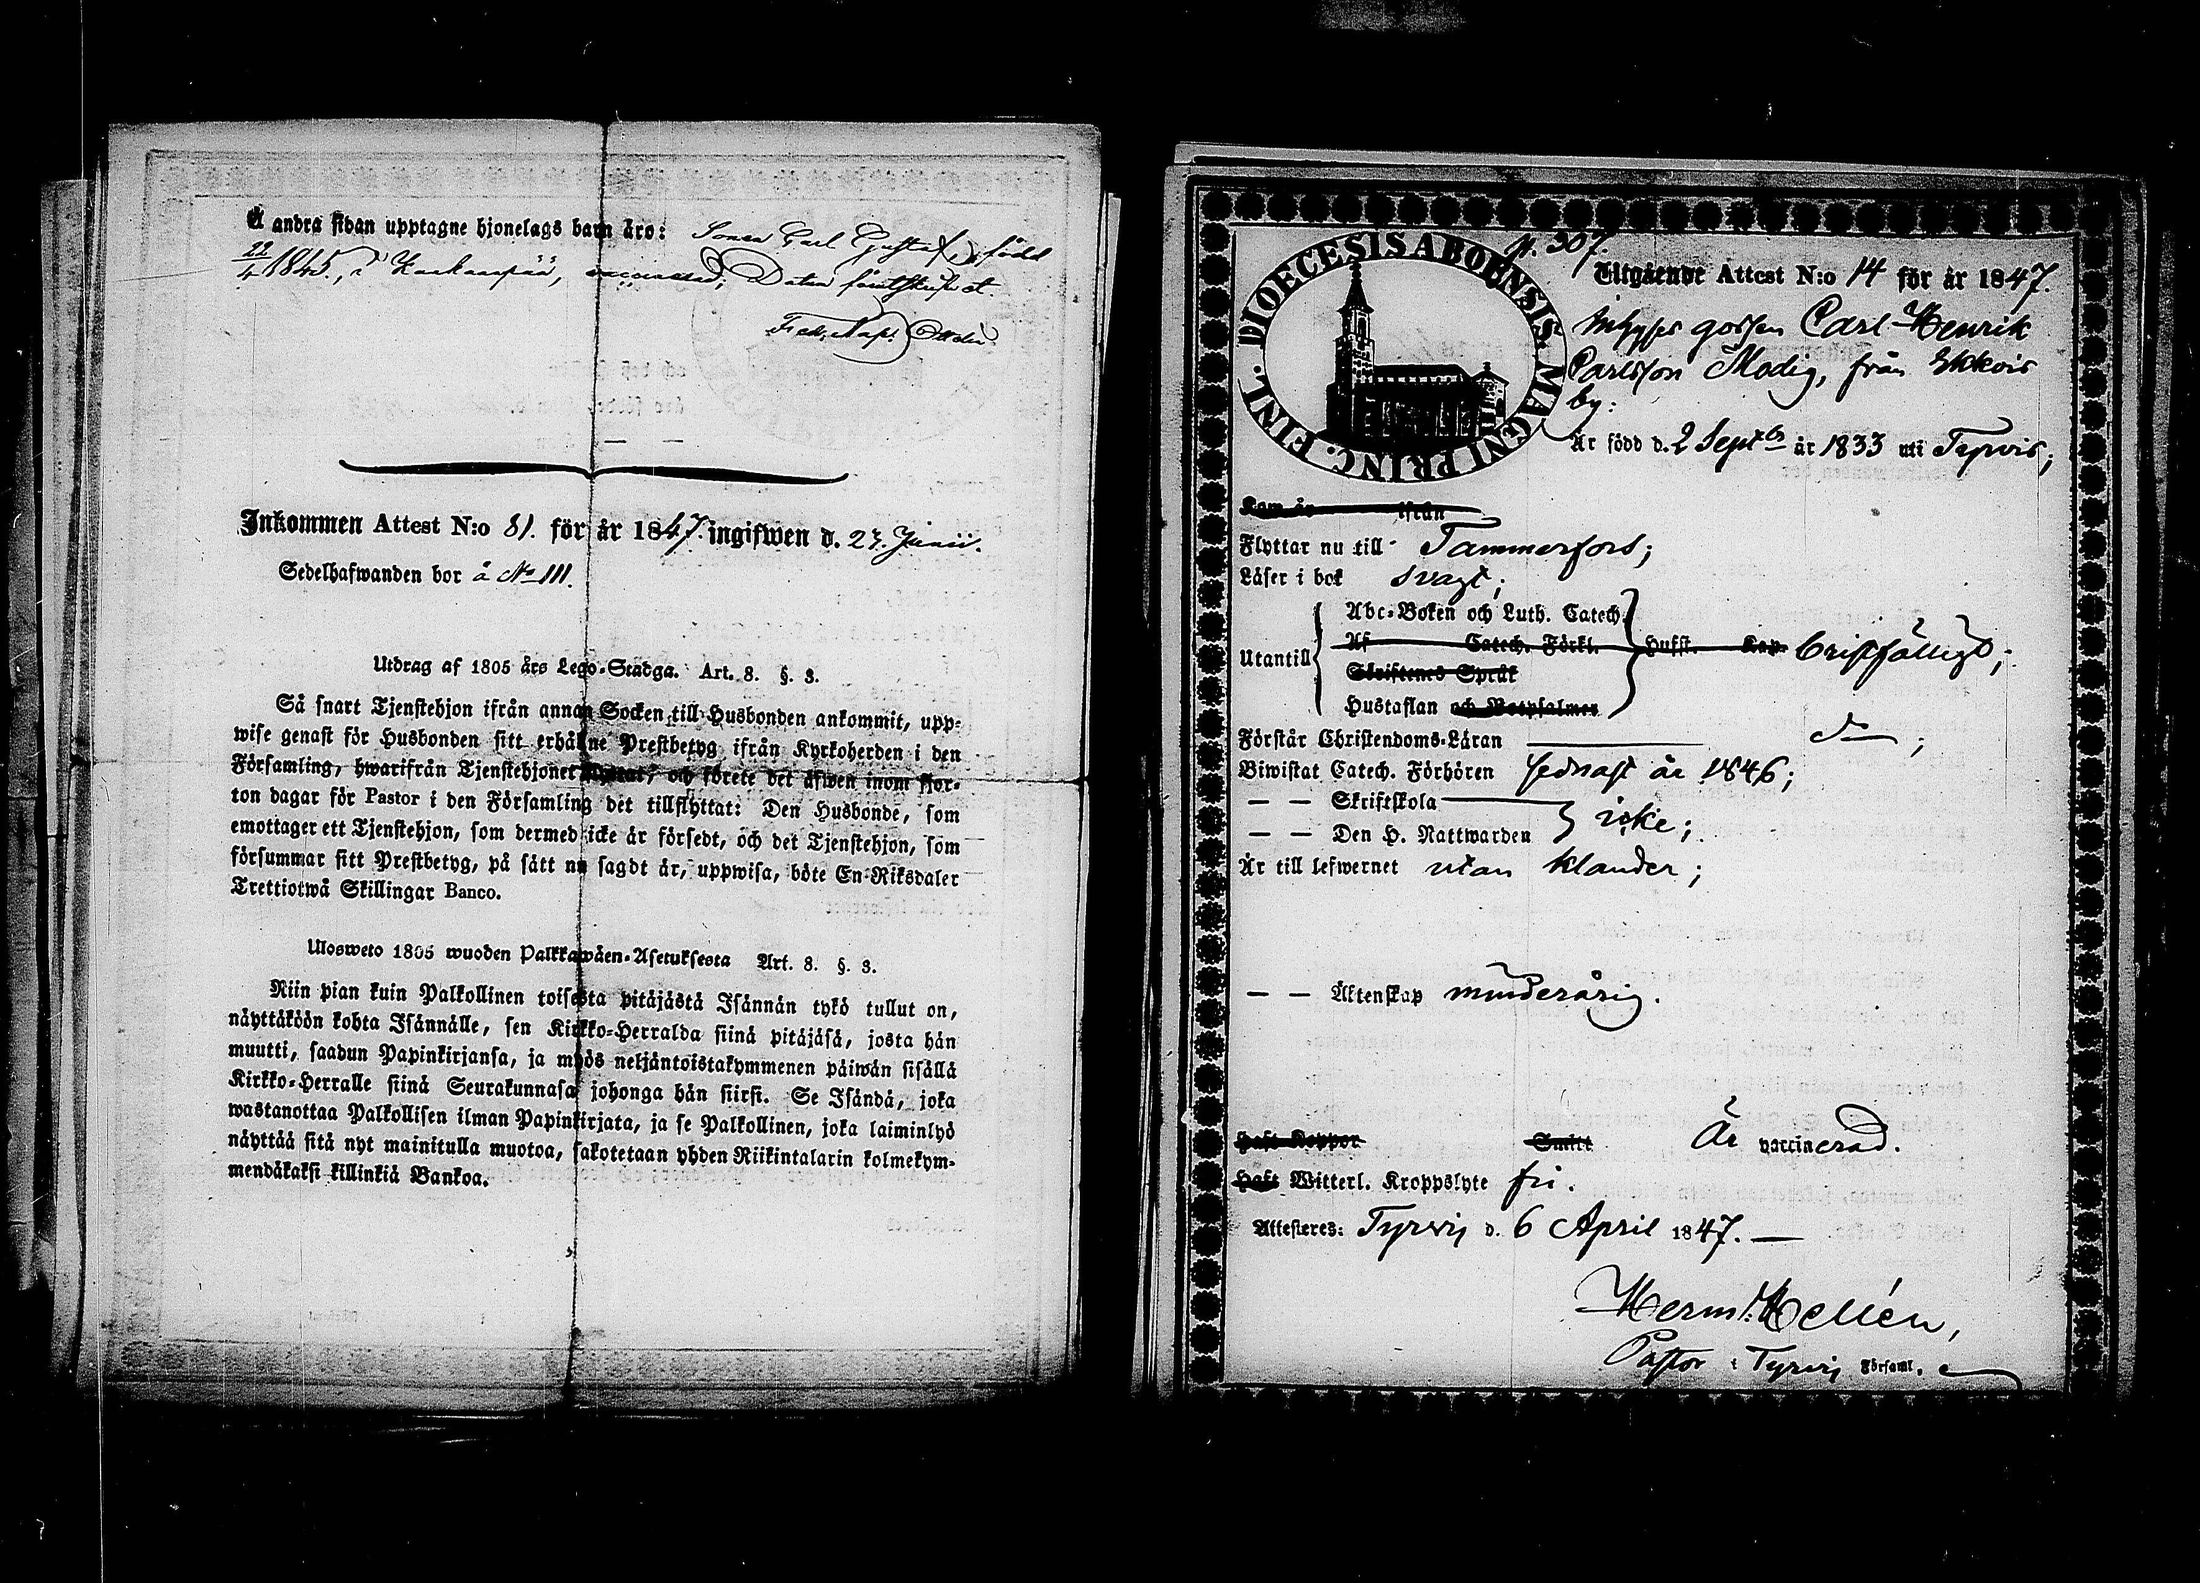 Å andra sidan upptagne hjonelags barn äro: Sonen Carl Gustaf, född
22/4 1845, i Kankaapää, vaccinerad; Datum föratskrifvet.
Inkommen Attest N:o 81. för år 1847. ingifwen d. 27. Junii.
Sedelhafwanden bor å No 111.
Utdrag af 1805 års Lego-Stadga. Art. 8. §. 3.
Så snart Tjenstehjon ifrån annan Socken till Husbonden ankommit, upp-
wise genast för Husbonden sitt erhållne Prestbetyg ifrån Kyrkoherden i den
Församling, hwarifrån Tjenstehjonet flyttat, och förete det äfwen inom fjor-
ton dagar för Pastor i den Församling det tillflyttat: Den Husbonde, som
emottager ett Tjenstehjon, som dermed icke är försedt, och det Tjenstehjon, som
försummar sitt Prestbetyg, på sätt nu sagdt är, uppwisa, böte En Riksdaler
Trettiotwå Skillingar Banco.
Ulosweto 1805 wuoden Palkkawäen-Asetuksesta Art. 8. §. 3.
Niin pian kuin Palkollinen toisesta pitäjästä Isännän tykö tullut on,
näyttäköön kohta Isännälle, sen Kirkko-Herralda siinä pitäjäsä, josta hän
muutti, saadun Papinkirjansa, ja myös neljäntoistakymmenen päiwän sisällä
Kirkko-Herralle siinä Seurakunnasa johonga hän siirsi. Se Isändä, joka
wastanottaa Palkollisen ilman Papinkirjata, ja se Palkollinen, joka laiminlyö
näyttää sitä nyt mainitulla muotoa, sakotetaan yhden Riikintalarin kolmekym-
mendäkaksi killinkiä Bankoa.
DIOECESIS ABOENSIS. MAGNI PRINC. FINL.
N. 307.
Utgående Attest N:o 14 för år 1847.
Inhyses gossen Carl Henrik
Carlsson Modig, från Ekkois
by:
Är född d. 2 Septbr år 1833 uti Tyrvis;
Kom år ifrån
Flyttar nu till Tammerfors;
Läser i bok svagt;
Abc-Boken och Luth. Catech.
Utantill Af Catech. Förkl. Hufst. Kap. bristfälligt;
Skriftenes Språk
Hustaflan och Botpsalmer
Förstår Christendoms-Läran do;
Biwistat Catech. Förhören sednast år 1846;
— — Skriftskola
— — Den H. Nattwarden icke;
Är till lefwernet utan klander;
— — Äktenskap minderårig.
Haft Koppor Smitt Är vaccinerad.
Haft Witterl. Kroppslyte fri.
Attesteres: Tyrvis d. 6 April 1847. —
Herm: Hellén,
Pastor i Tyrvis Församl.